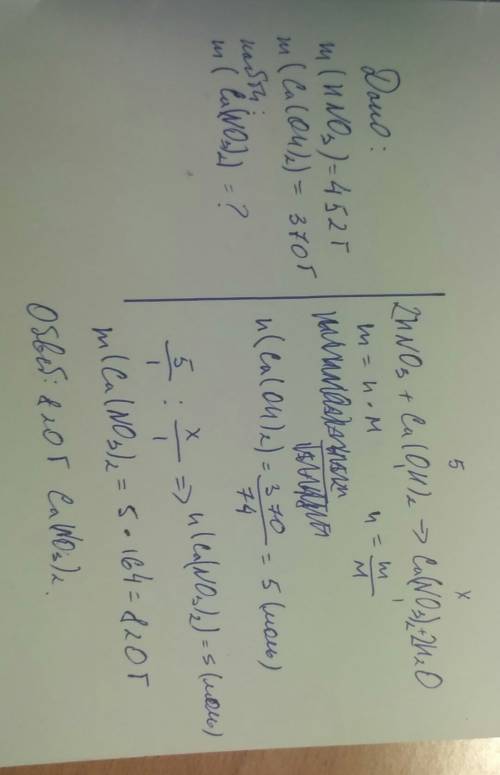 Дано:
m(HNO3)=452г
m(Ca(OH)2)= 370г
найти:
m(Ca(NO3)2) = ?
5 x
2HNO3 + Ca(OH)2 → Ca(NO3)2+2H2O
1 1
m = n · M n = m/M
n(Ca(OH)2) = 370/74 = 5 (моль)
5/1 : x/1 => n(Ca(NO3)2) = 5 (моль)
m(Ca(NO3)2 = 5 · 164 = 820г
Ответ: 820г Ca(NO3)2.